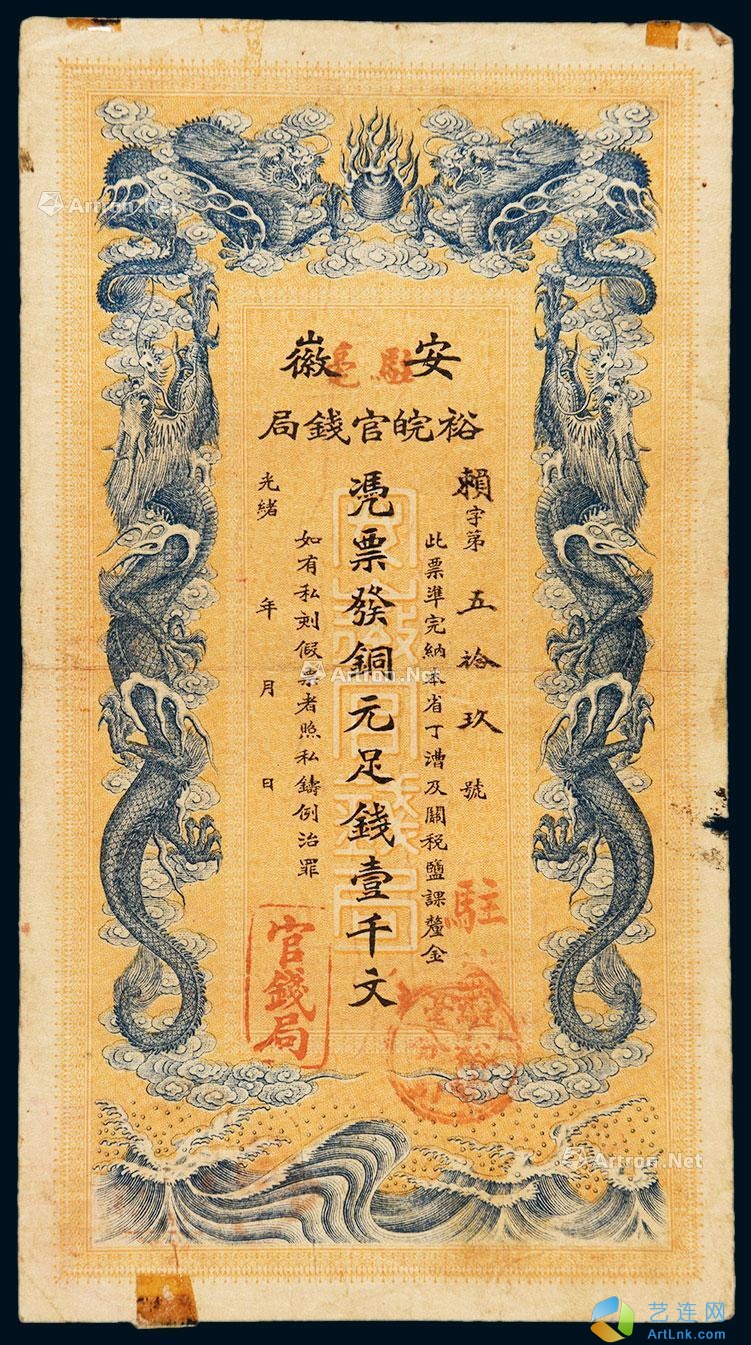 安徽
駐亳
裕皖官錢局
賴字第五拾玖號
此票準完納本省丁漕及關稅鹽課釐金
憑票發銅元足錢壹千文
如有私刻假票者照私鑄例治罪
光緒 年 月 日
駐
官錢局
Artron.Net
Artron.Net
Artron.Net
艺连网
ArtLnk.com